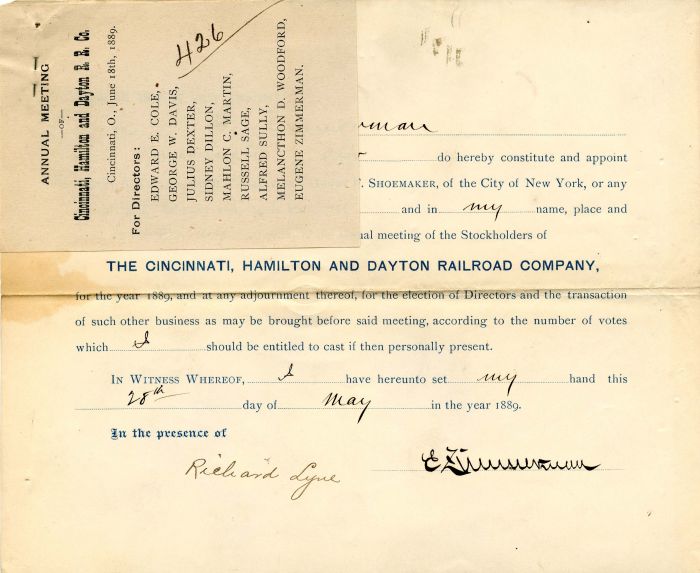 ANNUAL MEETING
—OF—
Cincinnati, Hamilton and Dayton R. R. Co.
Cincinnati, O., June 18th, 1889.
For Directors:
EDWARD E. COLE,
GEORGE W. DAVIS,
JULIUS DEXTER,
SIDNEY DILLON,
MAHLON C. MARTIN,
RUSSELL SAGE,
ALFRED SULLY,
MELANCTHON D. WOODFORD,
EUGENE ZIMMERMAN.
426
do hereby constitute and appoint
SHOEMAKER, of the City of New York, or any
and in my name, place and
meeting of the Stockholders of
THE CINCINNATI, HAMILTON AND DAYTON RAILROAD COMPANY,
for the year 1889, and at any adjournment thereof, for the election of Directors and the transaction
of such other business as may be brought before said meeting, according to the number of votes
which I should be entitled to cast if then personally present.
IN WITNESS WHEREOF, I have hereunto set my hand this
28th day of May in the year 1889.
In the presence of
Richard Lyne
E Zimmerman